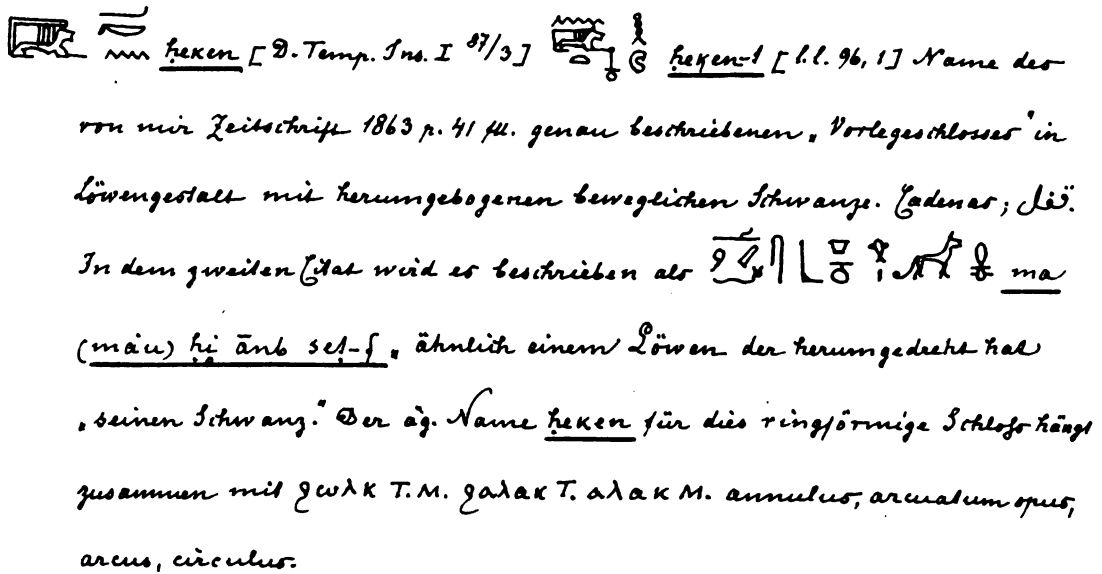 ḥeken [D. Temp. Ins. I 87/3] ḥeken-t [l.l. 96,1] Name des
von mir Zeitschrift 1863 p. 41 fll. genau beschriebenen „Vorlegeschlosses“ in
Löwengestalt mit herumgebogenen beweglichen Schwanze. Cadenas;
In dem zweiten Citat wird es beschrieben als ma
(máu) ḥi ānb set-f „ähnlich einem Löwen der herumgedreht hat
„seinen Schwanz.“ Der äg. Name ḥeken für dies ringförmige Schloss hängt
zusammen mit ϩωλκ T.M. ϩαλακ T. αλακ M. annulus, arcuatum opus,
arcus, circulus.